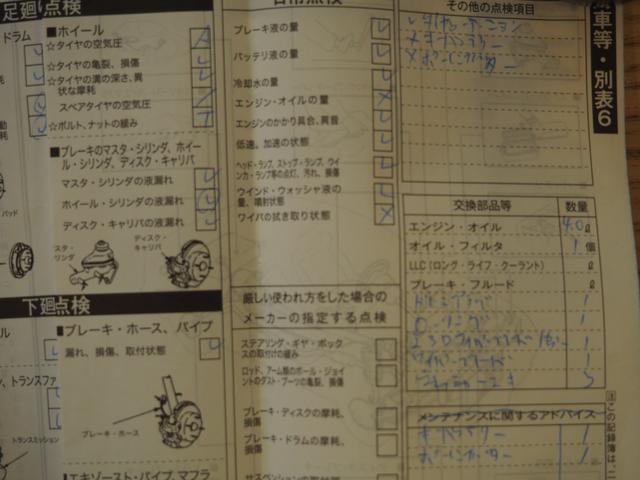 足廻り点検
ドラム
■ホイール
☆タイヤの空気圧
☆タイヤの亀裂、損傷
☆タイヤの溝の深さ、異
状な摩耗
スペアタイヤの空気圧
☆ボルト、ナットの緩み
■ブレーキのマスタ・シリンダ、ホイー
ル・シリンダ、ディスク・キャリパ
マスタ・シリンダの液漏れ
ホイール・シリンダの液漏れ
ディスク・キャリパの液漏れ
パッド
スタ・
リンダ
ディスク・
キャリパ
下廻り点検
■ブレーキ・ホース、パイプ
漏れ、損傷、取付状態
、トランスファ
トランスミッション
ブレーキ・ホース
■エキゾースト・パイプ、マフラ
日常点検
ブレーキ液の量
バッテリ液の量
冷却水の量
エンジン・オイルの量
エンジンのかかり具合、異音
低速、加速の状態
ヘッド・ランプ、ストップ・ランプ、ウイ
ンカ・ランプ等の点灯、汚れ、損傷
ウインド・ウォッシャ液の
量、噴射状態
ワイパの拭き取り状態
厳しい使われ方をした場合の
メーカーの指定する点検
ステアリング・ギヤ・ボック
スの取付けの緩み
ロッド、アーム類のボール・ジョイ
ントのダスト・ブーツの亀裂、損傷
ブレーキ・ディスクの摩耗、
損傷
ブレーキ・ドラムの摩耗、
損傷
その他の点検項目
車等・別表6
交換部品等 数量
エンジン・オイル 4.0 ℓ
オイル・フィルタ 1 個
LLC(ロング・ライフ・クーラント) ℓ
ブレーキ・フルード ℓ
1
Oーリング 1
1
ワイパーブレード 1
メンテナンスに関するアドバイス
1
1
この記録簿は、